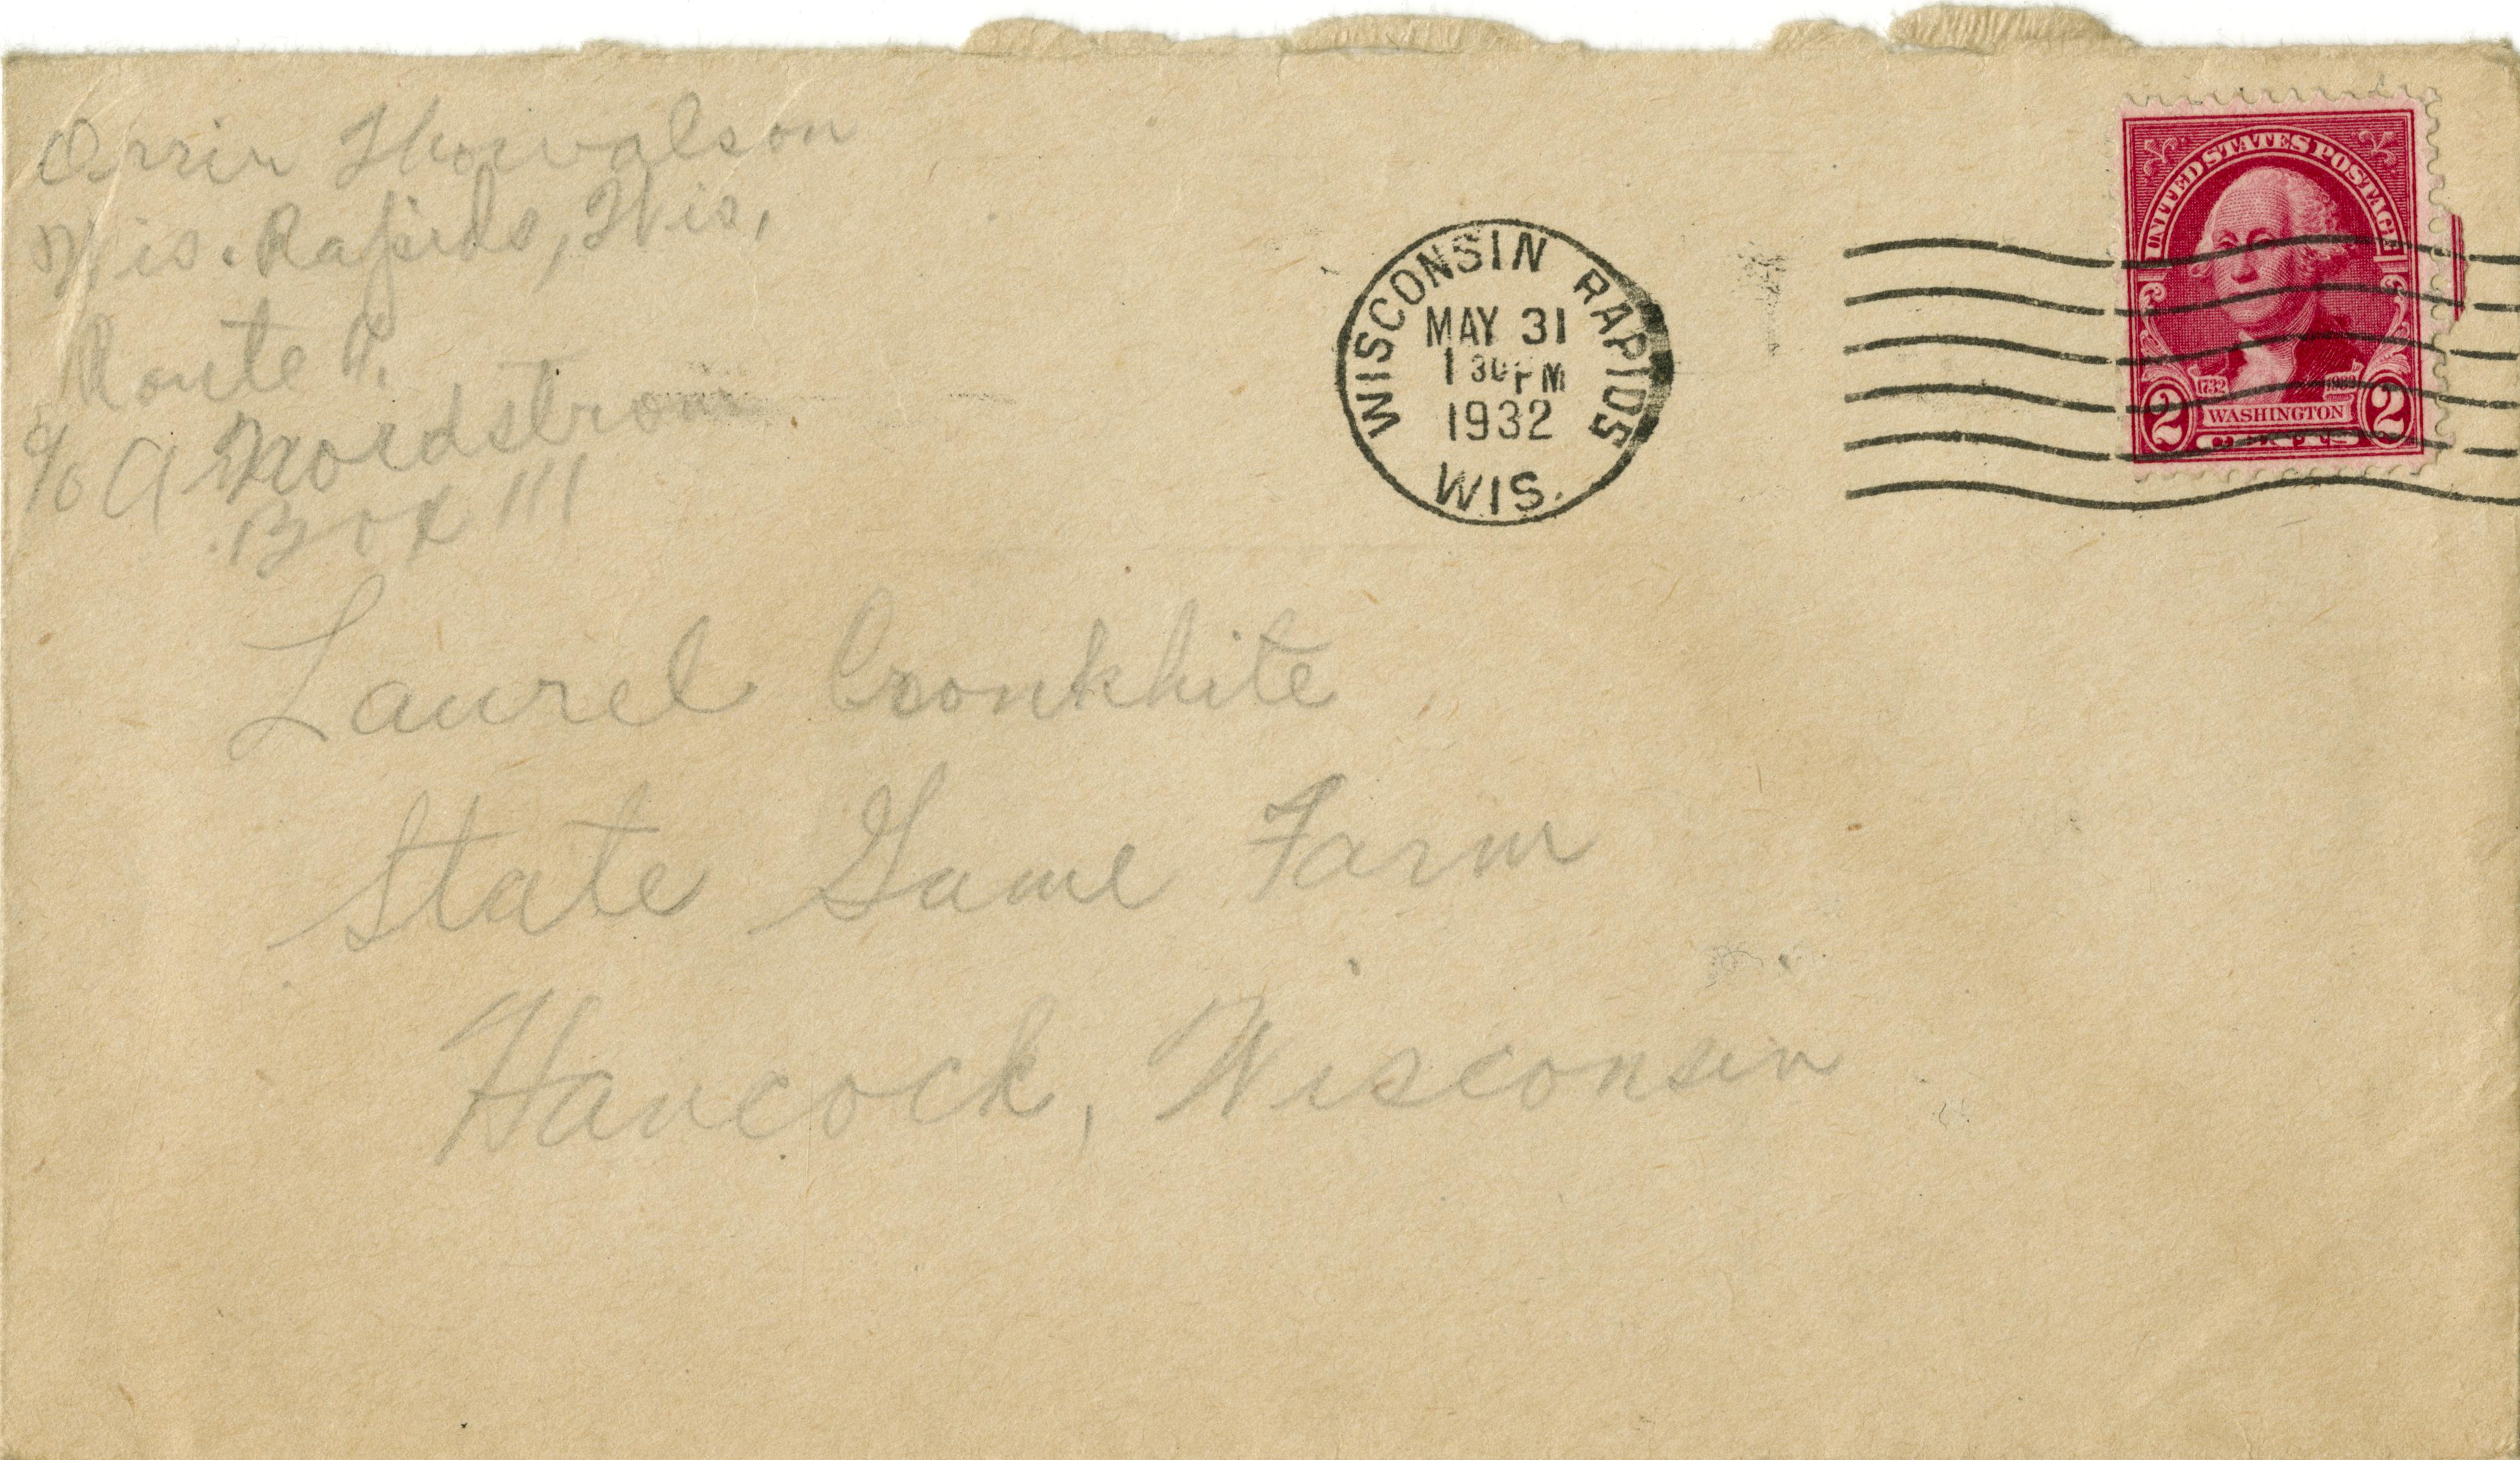 Orrin
Wis. Rapids, Wis,
Route
c/o A Nordstrom
Box 111
WISCONSIN RAPIDS
MAY 31
1 30 PM
1932
WIS.
UNITED STATES POSTAGE
1732
2 WASHINGTON 2
Laurel Cronkhite
State Game Farm
Hancock, Wisconsin